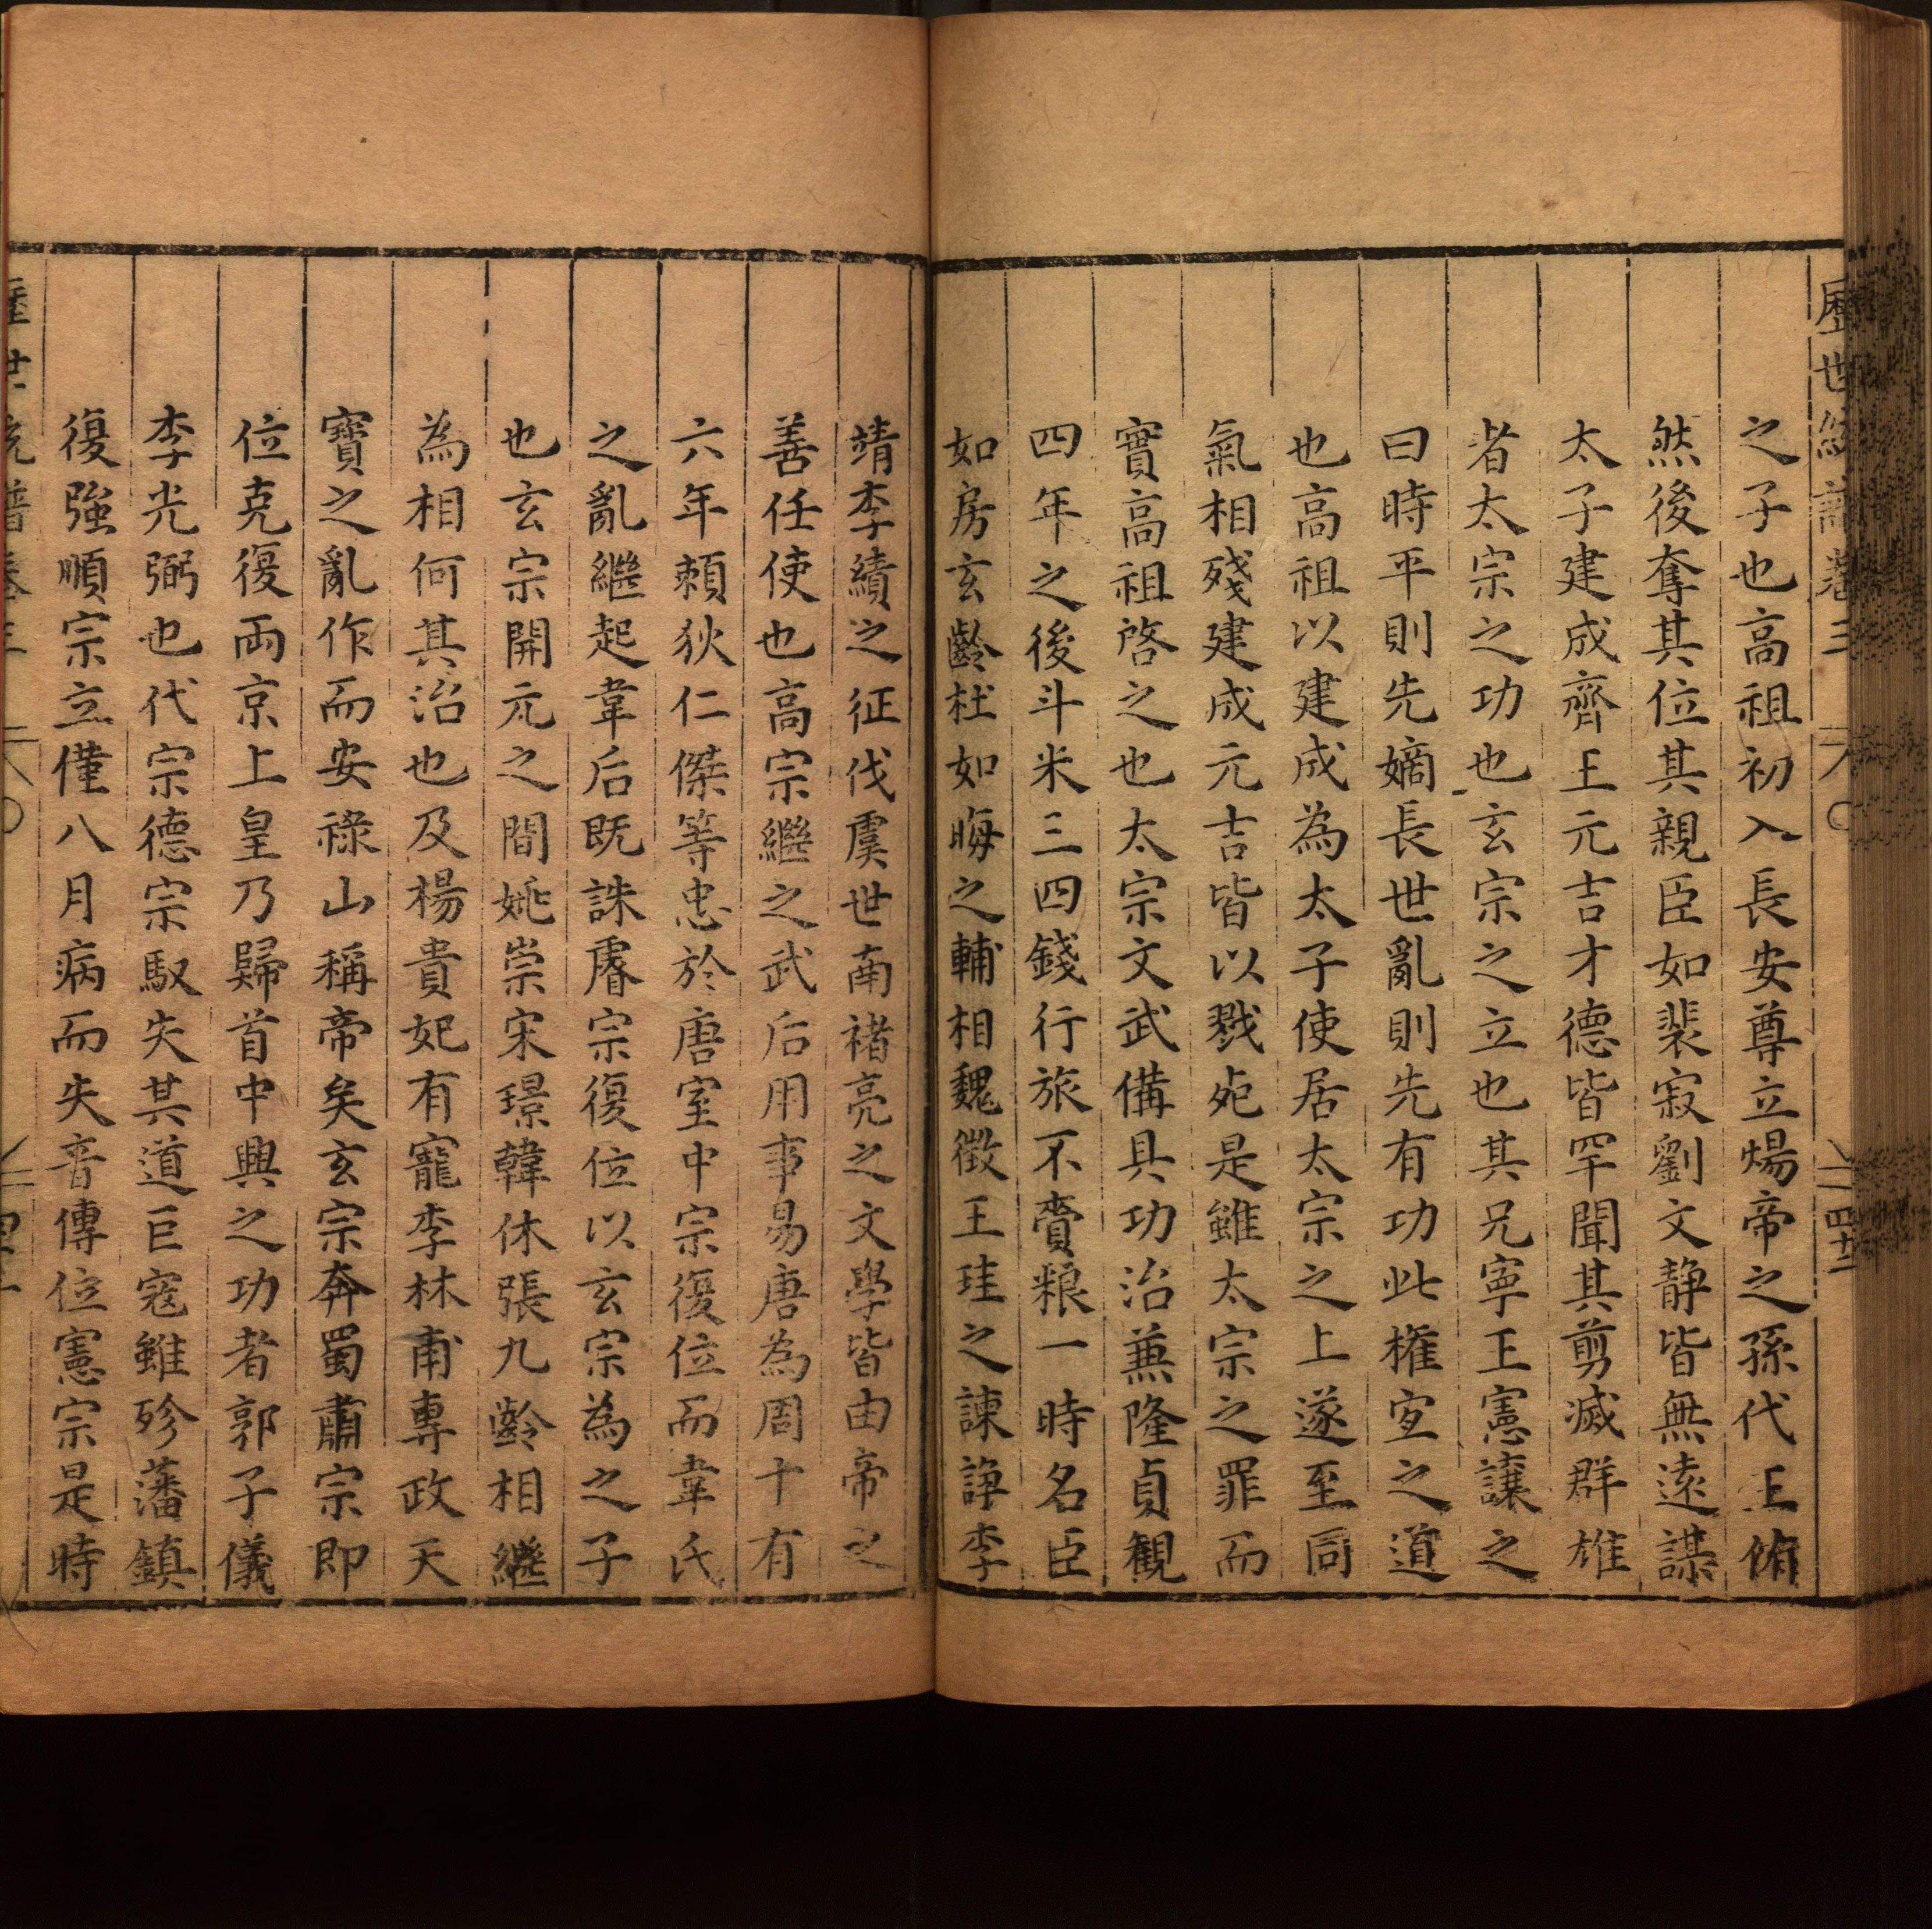 歷世統譜卷三 四十二
之子也高祖初入長安尊立煬帝之孫代王侑
然後奪其位其親臣如裴寂劉文静皆無遠謀
太子建成齊王元吉才德皆罕聞其剪滅群雄
者太宗之功也玄宗之立也其兄寧王憲讓之
曰時平則先嫡長世亂則先有功此權宜之道
也高祖以建成為太子使居太宗之上遂至同
氣相殘建成元吉皆以戮死是雖太宗之罪而
實高祖啓之也太宗文武備具功治兼隆貞觀
四年之後斗米三四錢行旅不賫粮一時名臣
如房玄齡杜如晦之輔相魏徵王珪之諫諍李
靖李績之征伐虞世南褚亮之文學皆由帝之
善任使也高宗繼之武后用事易唐為周十有
六年頼狄仁傑等忠於唐室中宗復位而韋氏
之亂繼起韋后既誅睿宗復位以玄宗為之子
也玄宗開元之間姚崇宋璟韓休張九齡相繼
為相何其治也及楊貴妃有寵李林甫專政天
寶之亂作而安祿山稱帝矣玄宗奔蜀肅宗即
位克復両京上皇乃歸首中興之功者郭子儀
李光弼也代宗德宗馭失其道巨寇雖殄藩鎮
復強順宗立僅八月病而失音傳位憲宗是時